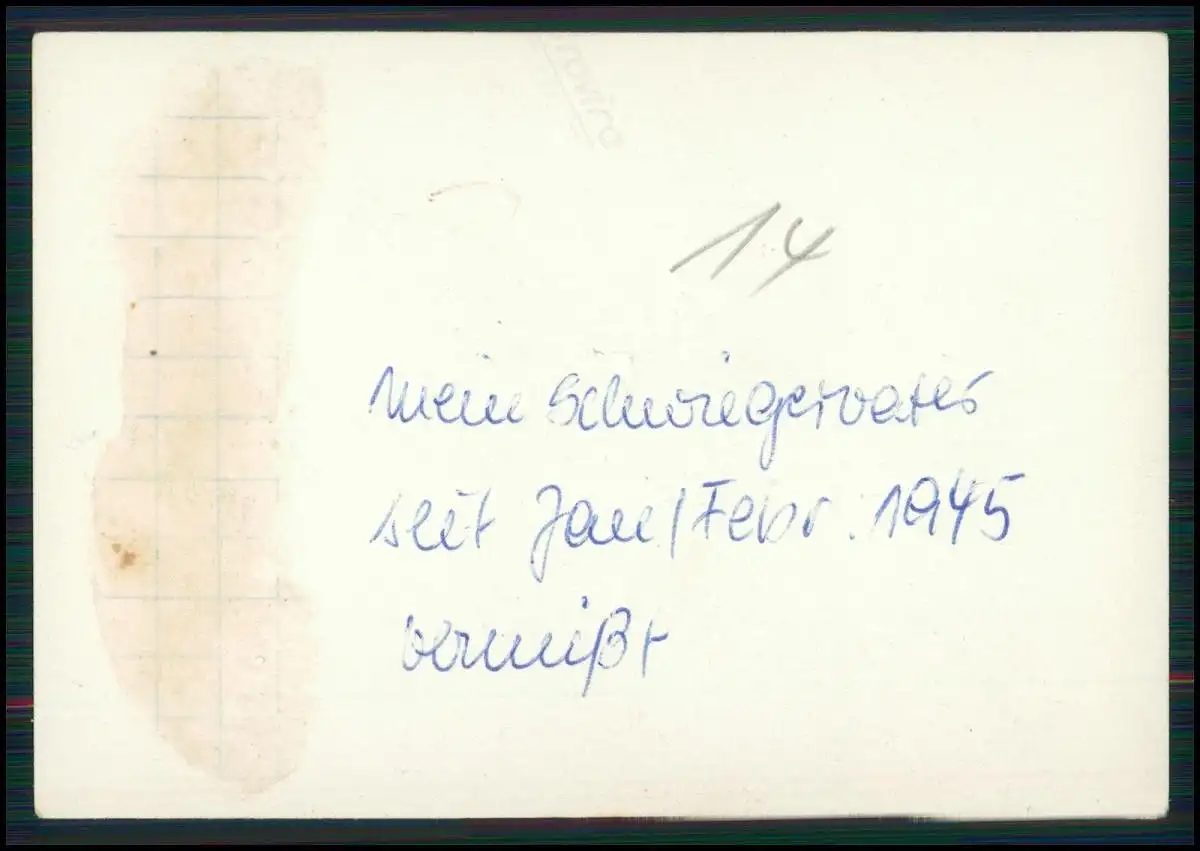 14
mein Schwiegervater
seit Jan/Febr. 1945
vermißt